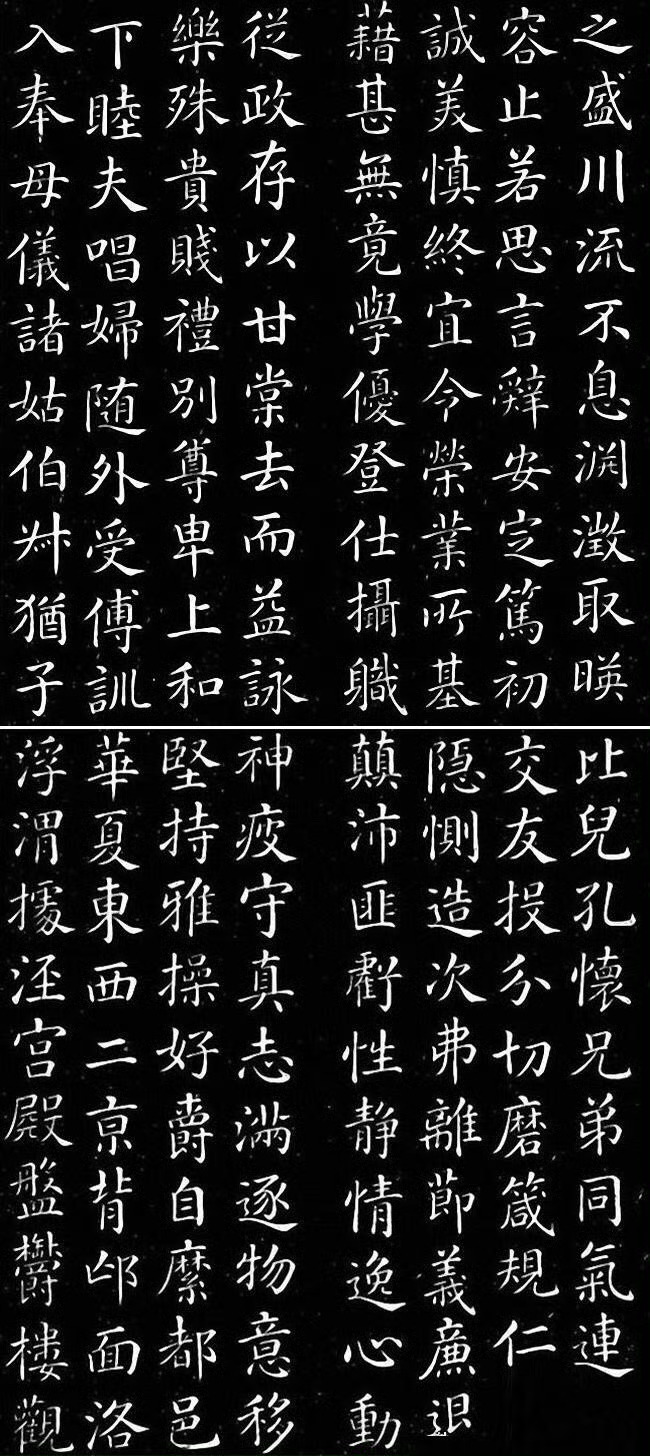 之盛川流不息渊澂取暎
容止若思言辭安定篤初
誠美慎終宜令榮業所基
藉甚無竟學優登仕攝職
從政存以甘棠去而益詠
樂殊貴賤禮別尊卑上和
下睦夫唱婦随外受傅訓
入奉母儀諸姑伯叔猶子
比兒孔懷兄弟同氣連
交友投分切磨箴規仁
隐惻造次弗離節義廉退
顛沛匪虧性静情逸心動
神疲守真志滿逐物意移
堅持雅操好爵自縻都邑
華夏東西二京背邙面洛
浮渭據涇宮殿盤鬱樓觀